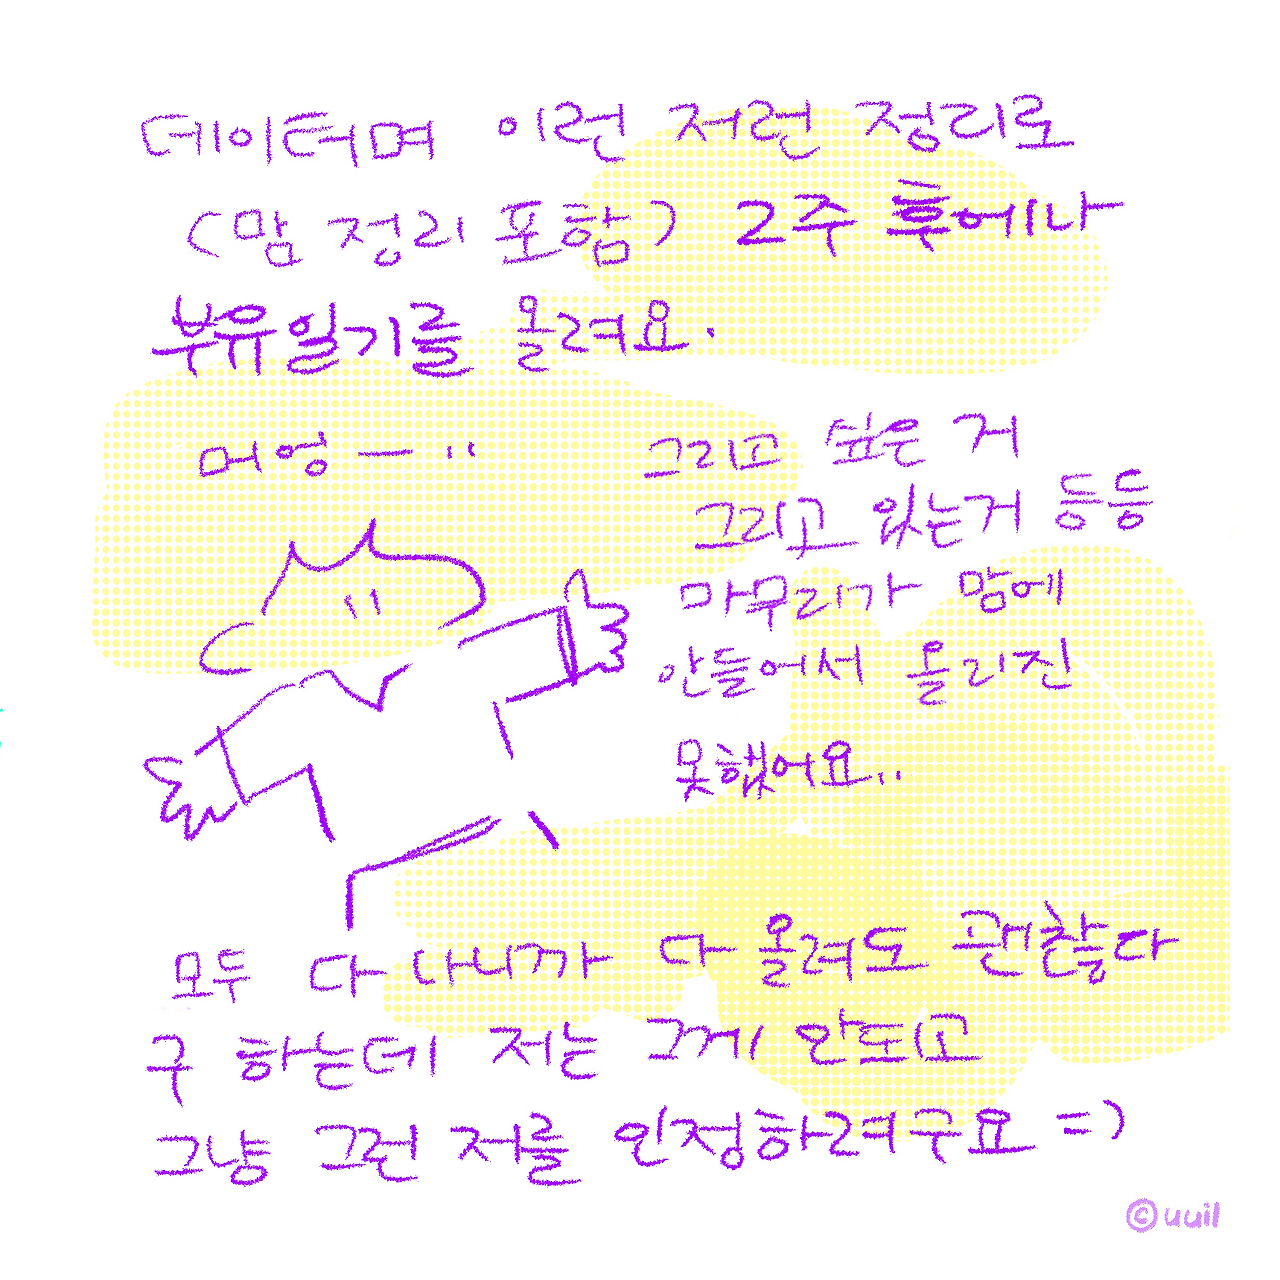 데이터며 이런 저런 정리로
(맘 정리 포함) 2주 후에나
부유일기를 올려요.
머엉 — ..
그리고 싶은 거
그리고 있는거 등등
마무리가 맘에
안들어서 올리진
못했어요..
모두 다 나니까 다 올려도 괜찮다
구 하는데 저는 그게 안되고
그냥 그런 저를 인정하려구요 =)
©uuil